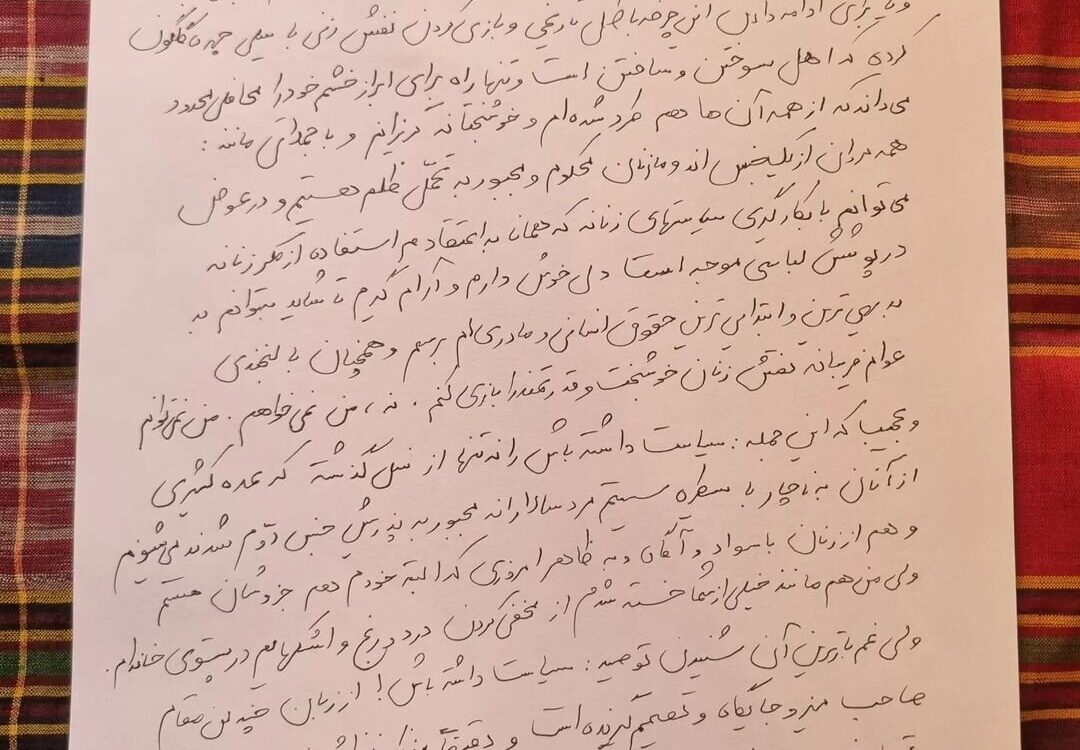 و یا برای ادامه دادن این چرخه باطل تاریخی و بازی کردن نقش زنی با سیلی چهره گلگون
کرده که اهل سوختن و ساختن است و تنها راه برای ابراز خشم خود را محافل محدود
می‌داند که از همه آن ها هم طرد شده‌ام و خوشبختانه گریزانم و با جملاتی مانند :
همه مردان از یک جنس اند و ما زنان محکوم و مجبور به تحمّل ظلم هستیم و در عوض
می‌توانم با بکارگیری سیاستهای زنانه که همانا به اعتقادم استفاده از مکر زنانه
در پوشش لباسی موجه است دلی خوش دارم و آرام گیرم تا شاید بتوانم به
به بدیهی ترین و ابتدایی ترین حقوق انسانی و مادری‌ام برسم و همچنان با لبخندی
عوام فریبانه نقش زنان خوشبخت و قدرتمند را بازی کنم . نه ، من نمی‌خواهم . من نمی‌توانم
و عجیب که این جمله : سیاست داشته باش را نه تنها از نسل گذشته که عده کثیری
از آنان به ناچار با سیطره سیستم مردسالارانه مجبور به پذیرش جنس دوّم شدند می‌شنوم
و هم از زنان باسواد و آگاه و به ظاهر امروزی که البته خودم هم جزوشان هستم
ولی من هم مانند خیلی از شما خسته شدم از مخفی کردن درد و رنج و اشکهایم در پستوی خانه‌ام .
ولی غم بارترین آن شنیدن توصیه : سیاست داشته باش ! از زبان چندین مقام
صاحب میز و جایگاه و تصمیم گیرنده است و دقیقاً